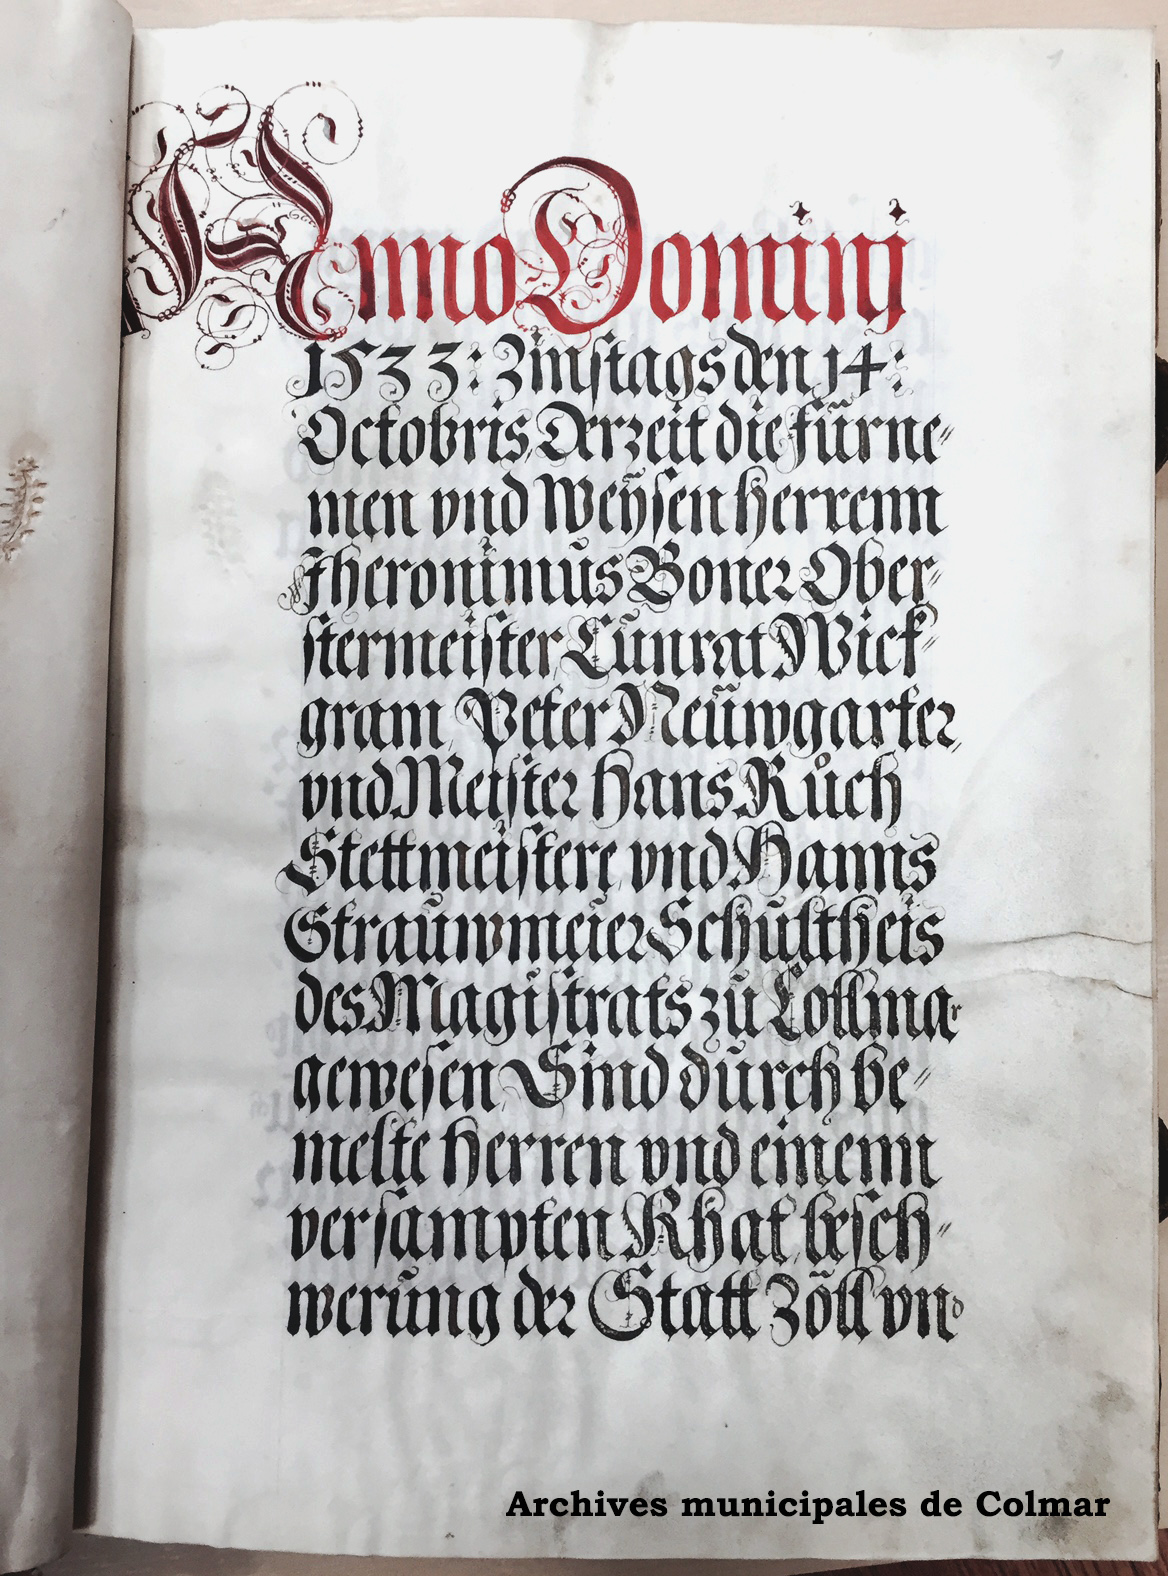 Anno Dominj
1533: Zinstags den 14:
Octobris, Derzeit die fürne=
men vnd Weÿsen herrenn
Jheronimus Boner Ober=
stermeister Cunrat Wick=
gram, Peter Neüwgarter,
vnd Meister Hans Růch
Stettmeistere, vnd Hanns
Strauwmeier Schultheis
des Magistrats zu Collmar
gewesen Sind durch be=
melte herren vnd einenn
versampten Rhat, besch=
werung der Statt Zöll vnd
Archives municipales de Colmar